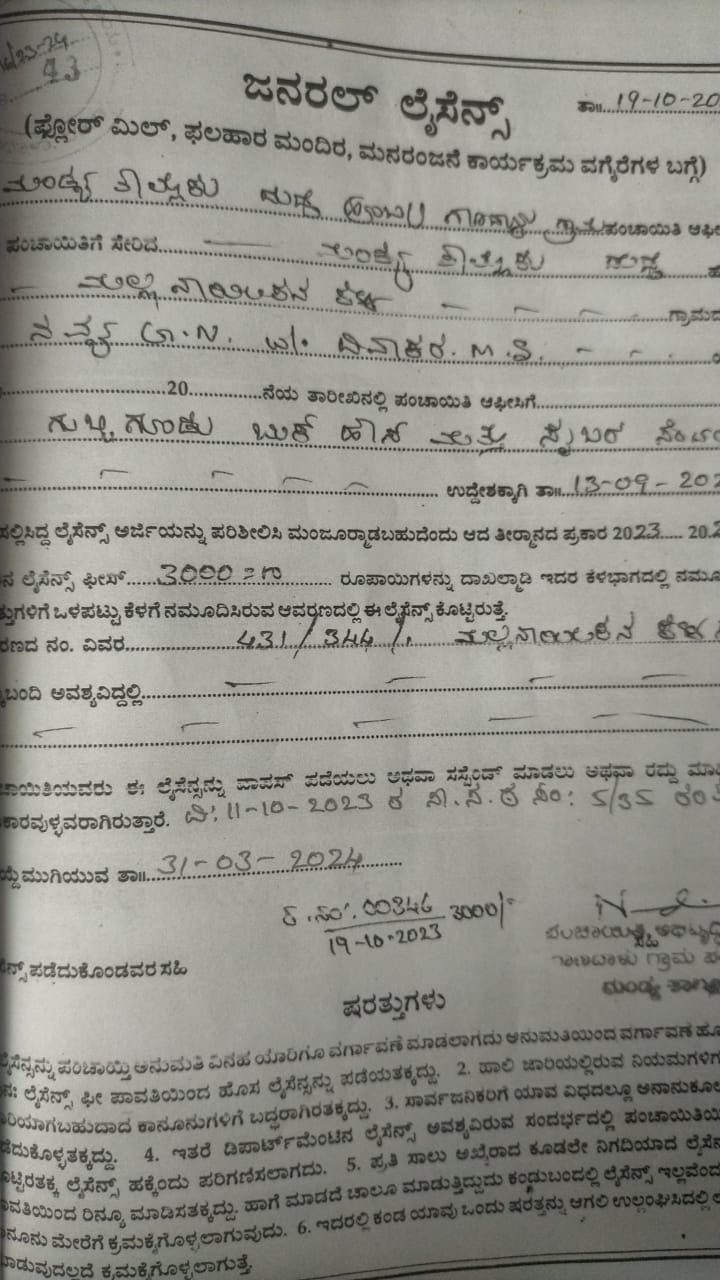 /23-24
43
ಜನರಲ್ ಲೈಸೆನ್ಸ್
ತಾ॥ 19-10-20
(ಫ್ಲೋರ್ ಮಿಲ್, ಫಲಹಾರ ಮಂದಿರ, ಮನರಂಜನೆ ಕಾರ್ಯಕ್ರಮ ವಗೈರೆಗಳ ಬಗ್ಗೆ)
ಮಂಡ್ಯ ತಾಲ್ಲೂಕು ಮಂಡ್ಯ ಗ್ರಾಮ ಪಂಚಾಯಿತಿ ಆಫೀ
ಪಂಚಾಯಿತಿಗೆ ಸೇರಿದ ಮಂಡ್ಯ ತಾಲ್ಲೂಕು ಮಂಡ್ಯ
ಮಲ್ಲನಾಯಕನ ಕಟ್ಟೆ ಗ್ರಾಮದ
ನವ್ಯ G.N. W/. ದಿವಾಕರ. M.S.
20 ನೆಯ ತಾರೀಖಿನಲ್ಲಿ ಪಂಚಾಯಿತಿ ಆಫೀಸಿಗೆ
ಬುಕ್ ಹೌಸ್ ಮತ್ತು ಸೈಬರ್
ಉದ್ದೇಶಕ್ಕಾಗಿ ತಾ॥ 13-09-202
ಸಲ್ಲಿಸಿದ್ದ ಲೈಸೆನ್ಸ್ ಅರ್ಜಿಯನ್ನು ಪರಿಶೀಲಿಸಿ ಮಂಜೂರ್ಮಾಡಬಹುದೆಂದು ಆದ ತೀರ್ಮಾನದ ಪ್ರಕಾರ 2023 20.2
ನ ಲೈಸೆನ್ಸ್ ಫೀಸ್ 3000=00 ರೂಪಾಯಿಗಳನ್ನು ದಾಖಲ್ಮಾಡಿ ಇದರ ಕೆಳಭಾಗದಲ್ಲಿ ನಮೂ
ತ್ತುಗಳಿಗೆ ಒಳಪಟ್ಟು ಕೆಳಗೆ ನಮೂದಿಸಿರುವ ಆವರಣದಲ್ಲಿ ಈ ಲೈಸೆನ್ಸ್ ಕೊಟ್ಟಿರುತ್ತೆ.
ರಣದ ನಂ. ವಿವರ 431/344/1 ಮಲ್ಲನಾಯಕನ ಕಟ್ಟೆ
ಬಂದಿ ಅವಶ್ಯವಿದ್ದಲ್ಲಿ
ಚಾಯಿತಿಯವರು ಈ ಲೈಸೆನ್ಸನ್ನು ವಾಪಸ್ ಪಡೆಯಲು ಅಥವಾ ಸಸ್ಪೆಂಡ್ ಮಾಡಲು ಅಥವಾ ರದ್ದು ಮಾ
ಕಾರವುಳ್ಳವರಾಗಿರುತ್ತಾರೆ. ದಿ: 11-10-2023 ರ ಸಾ.ಸ.ಠ ನಂ: 5/35
ಮುಗಿಯುವ ತಾ॥ 31-03-2024
ರ.ನಂ. 00346 3000/-
19-10-2023
ಸೆನ್ಸ್ ಪಡೆದುಕೊಂಡವರ ಸಹಿ
ಪಂಚಾಯತಿ ಅಭಿವೃದ್ಧಿ
ಗ್ರಾಮ ಪಂ
ಮಂಡ್ಯ ತಾಲ್ಲೂ
ಷರತ್ತುಗಳು
ಲೈಸೆನ್ಸನ್ನು ಪಂಚಾಯ್ತಿ ಅನುಮತಿ ವಿನಹ ಯಾರಿಗೂ ವರ್ಗಾವಣೆ ಮಾಡಲಾಗದು ಅನುಮತಿಯಿಂದ ವರ್ಗಾವಣೆ ಹೊ
ನಃ ಲೈಸೆನ್ಸ್ ಫೀ ಪಾವತಿಯಿಂದ ಹೊಸ ಲೈಸೆನ್ಸನ್ನು ಪಡೆಯತಕ್ಕದ್ದು. 2. ಹಾಲಿ ಜಾರಿಯಲ್ಲಿರುವ ನಿಯಮಗಳಿಗ
ರಿಯಾಗಬಹುದಾದ ಕಾನೂನುಗಳಿಗೆ ಬದ್ಧರಾಗಿರತಕ್ಕದ್ದು. 3. ಸಾರ್ವಜನಿಕರಿಗೆ ಯಾವ ವಿಧದಲ್ಲೂ ಅನಾನುಕೂಲ
ಡೆದುಕೊಳ್ಳತಕ್ಕದ್ದು. 4. ಇತರೆ ಡಿಪಾರ್ಟ್‌ಮೆಂಟಿನ ಲೈಸೆನ್ಸ್ ಅವಶ್ಯವಿರುವ ಸಂದರ್ಭದಲ್ಲಿ ಪಂಚಾಯಿತಿಯಿ
ಟ್ಟಿರತಕ್ಕ ಲೈಸೆನ್ಸ್ ಹಕ್ಕೆಂದು ಪರಿಗಣಿಸಲಾಗದು. 5. ಪ್ರತಿ ಸಾಲು ಅಖೈರಾದ ಕೂಡಲೇ ನಿಗದಿಯಾದ ಲೈಸೆನ
ಪಾವತಿಯಿಂದ ರಿನ್ಯೂ ಮಾಡಿಸತಕ್ಕದ್ದು. ಹಾಗೆ ಮಾಡದೆ ಚಾಲೂ ಮಾಡುತ್ತಿದ್ದುದು ಕಂಡುಬಂದಲ್ಲಿ ಲೈಸೆನ್ಸ್ ಇಲ್ಲವೆಂದ
ನೂನು ಮೇರೆಗೆ ಕ್ರಮಕೈಗೊಳ್ಳಲಾಗುವುದು. 6. ಇದರಲ್ಲಿ ಕಂಡ ಯಾವು ಒಂದು ಷರತ್ತನ್ನು ಆಗಲಿ ಉಲ್ಲಂಘಿಸಿದಲ್ಲಿ
ಮಾಡುವುದಲ್ಲದೆ ಕ್ರಮಕೈಗೊಳ್ಳಲಾಗುತ್ತೆ.